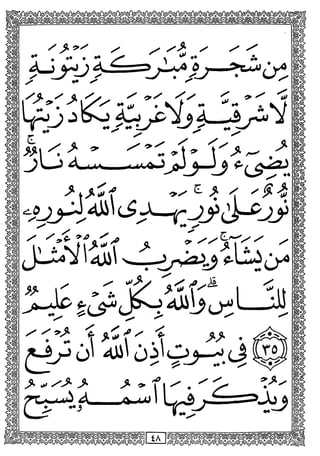 مِن شَجَرَةٍ مُّبَٰرَكَةٍ زَيْتُونَةٍ
لَّا شَرْقِيَّةٍ وَلَا غَرْبِيَّةٍ يَكَادُ زَيْتُهَا
يُضِيٓءُ وَلَوْ لَمْ تَمْسَسْهُ نَارٌ ۚ
نُّورٌ عَلَىٰ نُورٍ ۗ يَهْدِى ٱللَّهُ لِنُورِهِۦ
مَن يَشَآءُ ۚ وَيَضْرِبُ ٱللَّهُ ٱلْأَمْثَٰلَ
لِلنَّاسِ ۗ وَٱللَّهُ بِكُلِّ شَىْءٍ عَلِيمٌ
﴿٣٥﴾ فِى بُيُوتٍ أَذِنَ ٱللَّهُ أَن تُرْفَعَ
وَيُذْكَرَ فِيهَا ٱسْمُهُۥ يُسَبِّحُ
٤٨